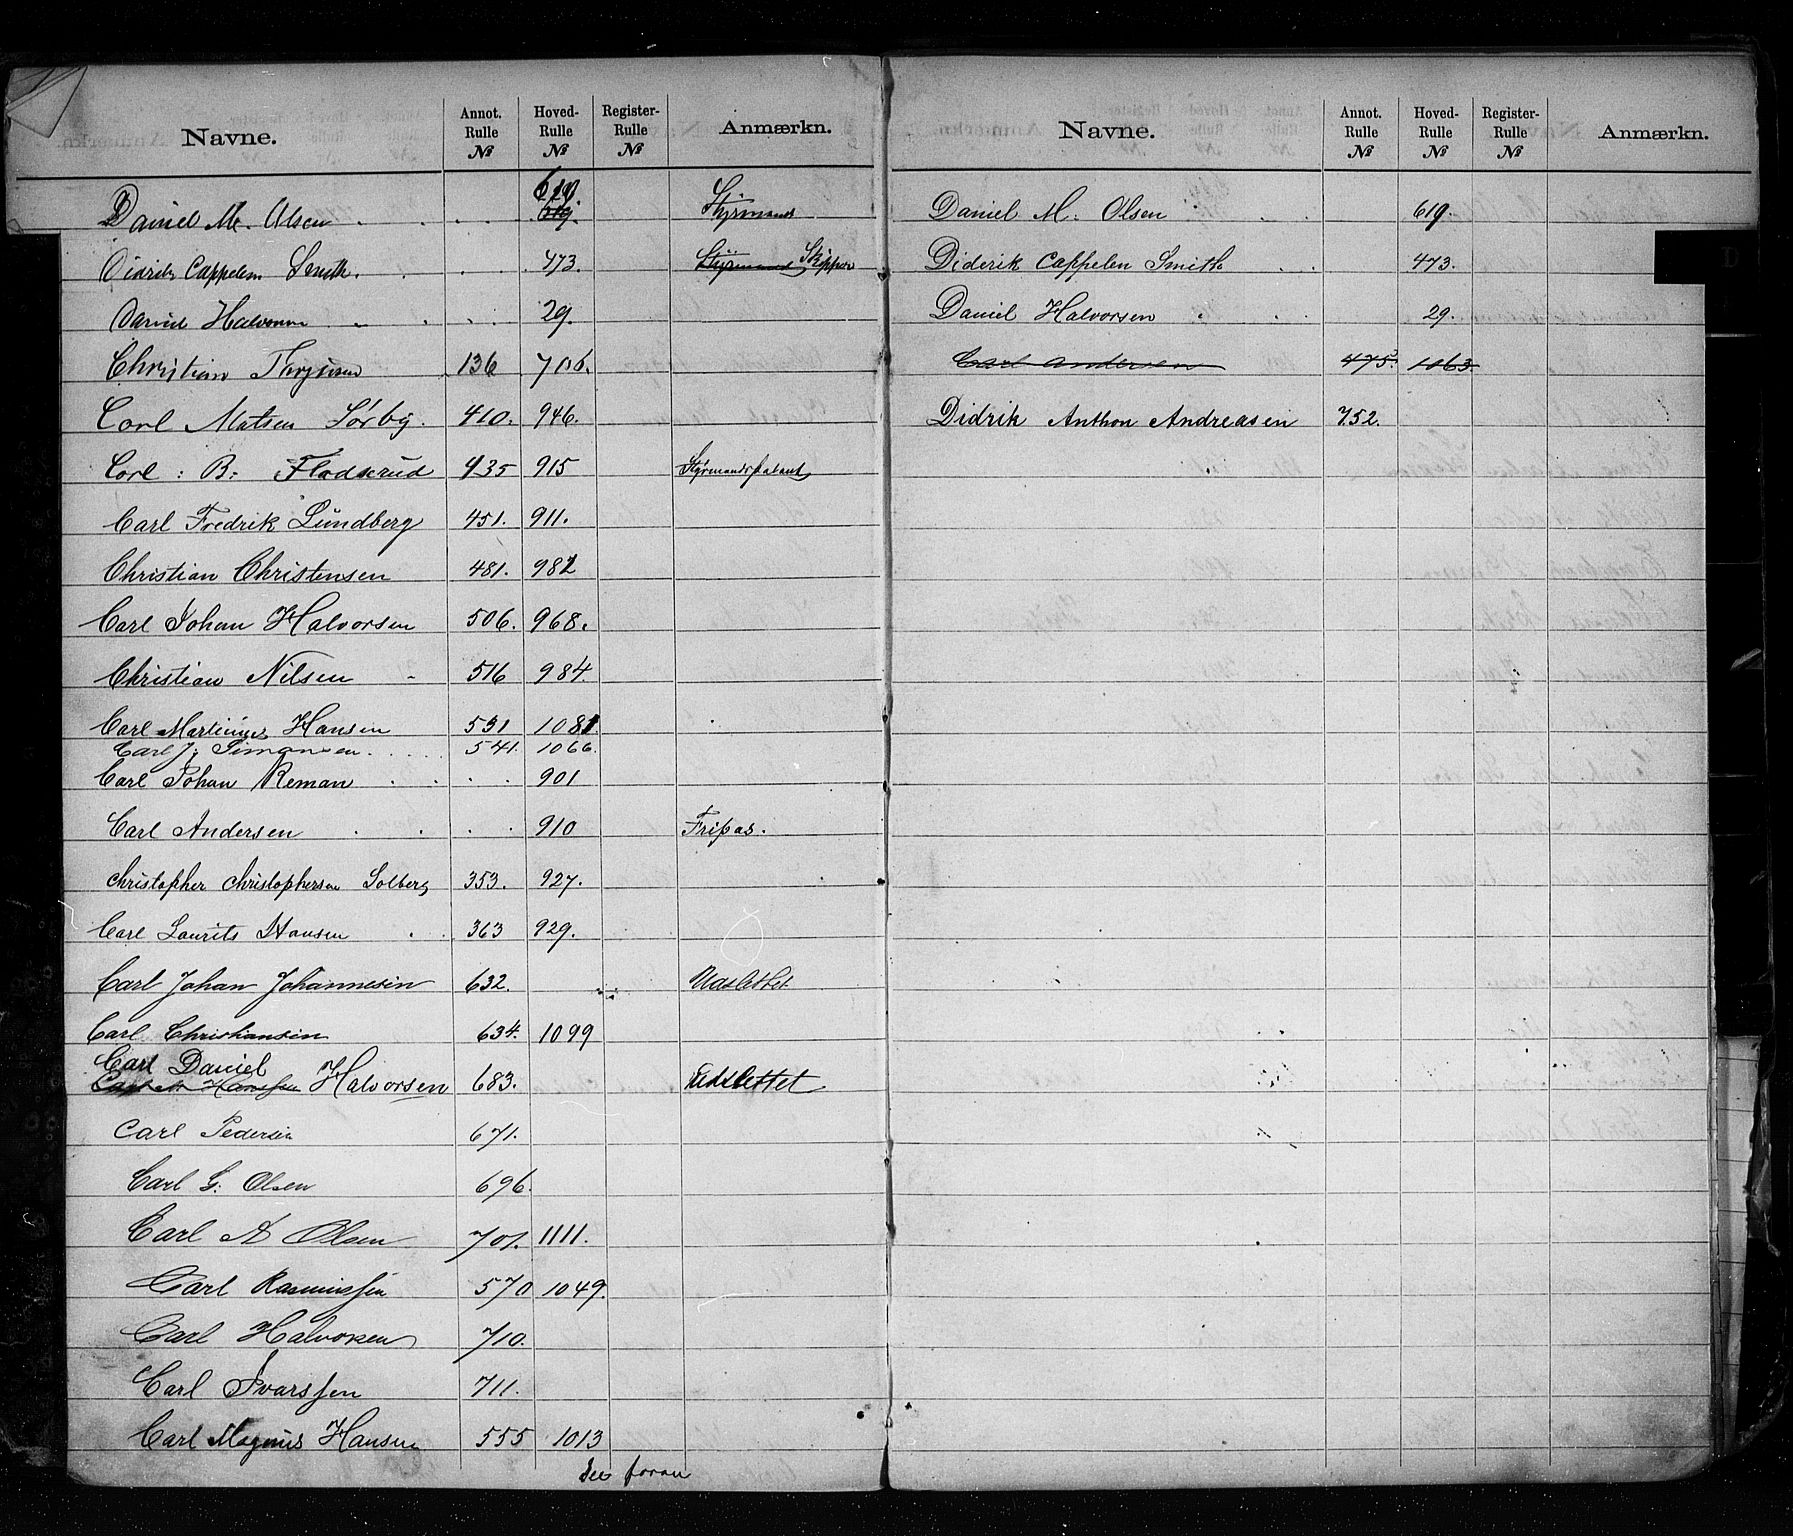 Navne. Annot. Rulle № Hoved-Rulle № Register-Rulle № Anmærkn.
Daniel M. Olsen 619. Styrmand
Didrik Cappelen Smith. 473. Styrmand Skipper
Daniel Halvorsen 29.
Christian Thygesen 136 706.
Carl Matsen Sørby. 410. 946.
Carl: B: Flodserud 435 915 Styrmandspatent
Carl Fredrik Lundberg 451. 911.
Christian Christensen 481. 982
Carl Johan Halvorsen 506. 968.
Christian Nilsen 516 984.
Carl Martinius Hansen 531 1081
Carl J. Simonsen. 541. 1066.
Carl Johan Reman 901
Carl Andersen 910 Fripas.
Christopher Christophersen Solberg 353. 927.
Carl Laurits Hansen 363 929.
Carl Johan Johannesen 632. Udslettet
Carl Christiansen 634. 1099
Carl Daniel
Halvorsen 683. Udslettet
Carl Pedersen 671.
Carl G. Olsen 696.
Carl A Olsen 701. 1111.
Carl Rasmussen 570 1049.
Carl Halvorsen 710.
Carl Ivarssen 711.
Carl Magnus Hansen 555 1013
See foran
Navne. Annot. Rulle № Hoved-Rulle № Register-Rulle № Anmærkn.
Daniel M. Olsen 619.
Diderik Cappelen Smith 473.
Daniel Halvorsen 29.
Carl Andersen 475. 1063.
Didrik Anthon Andreasen 752.
D